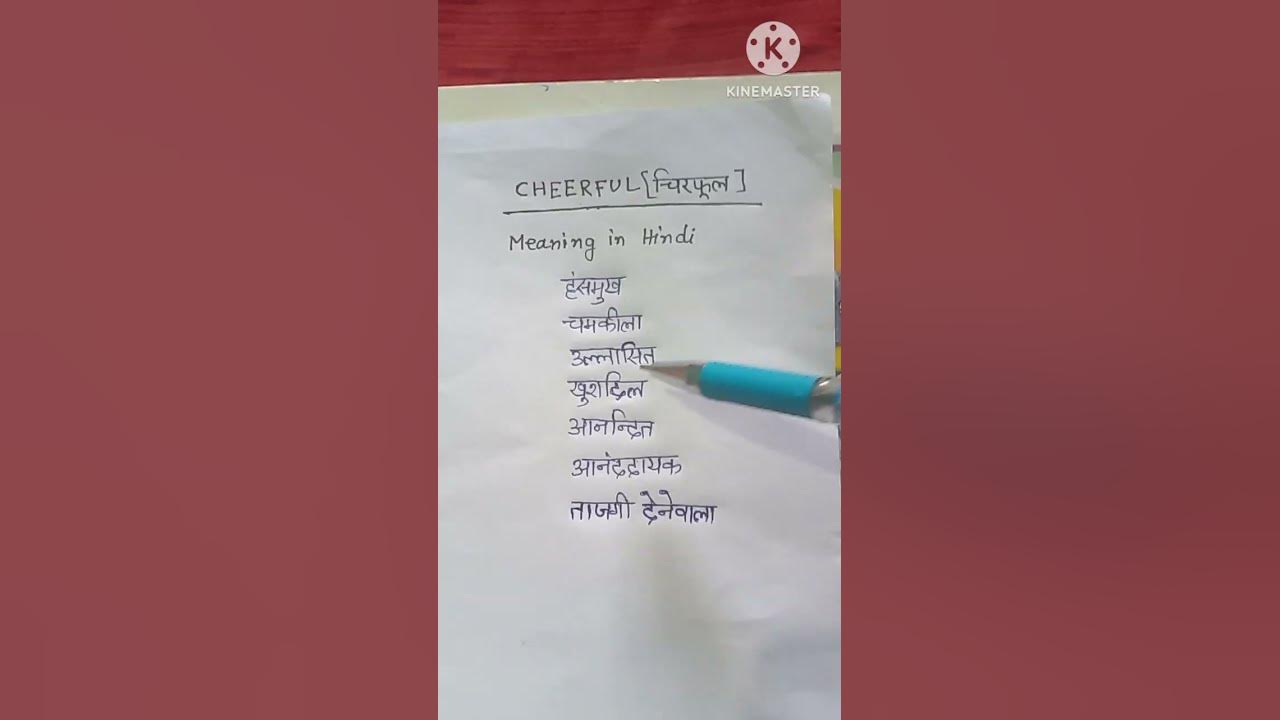 K
KINEMASTER
CHEERFUL [चिरफूल]
Meaning in Hindi
हंसमुख
चमकीला
उल्लासित
खुशदिल
आनन्दित
आनंददायक
ताजगी देनेवाला